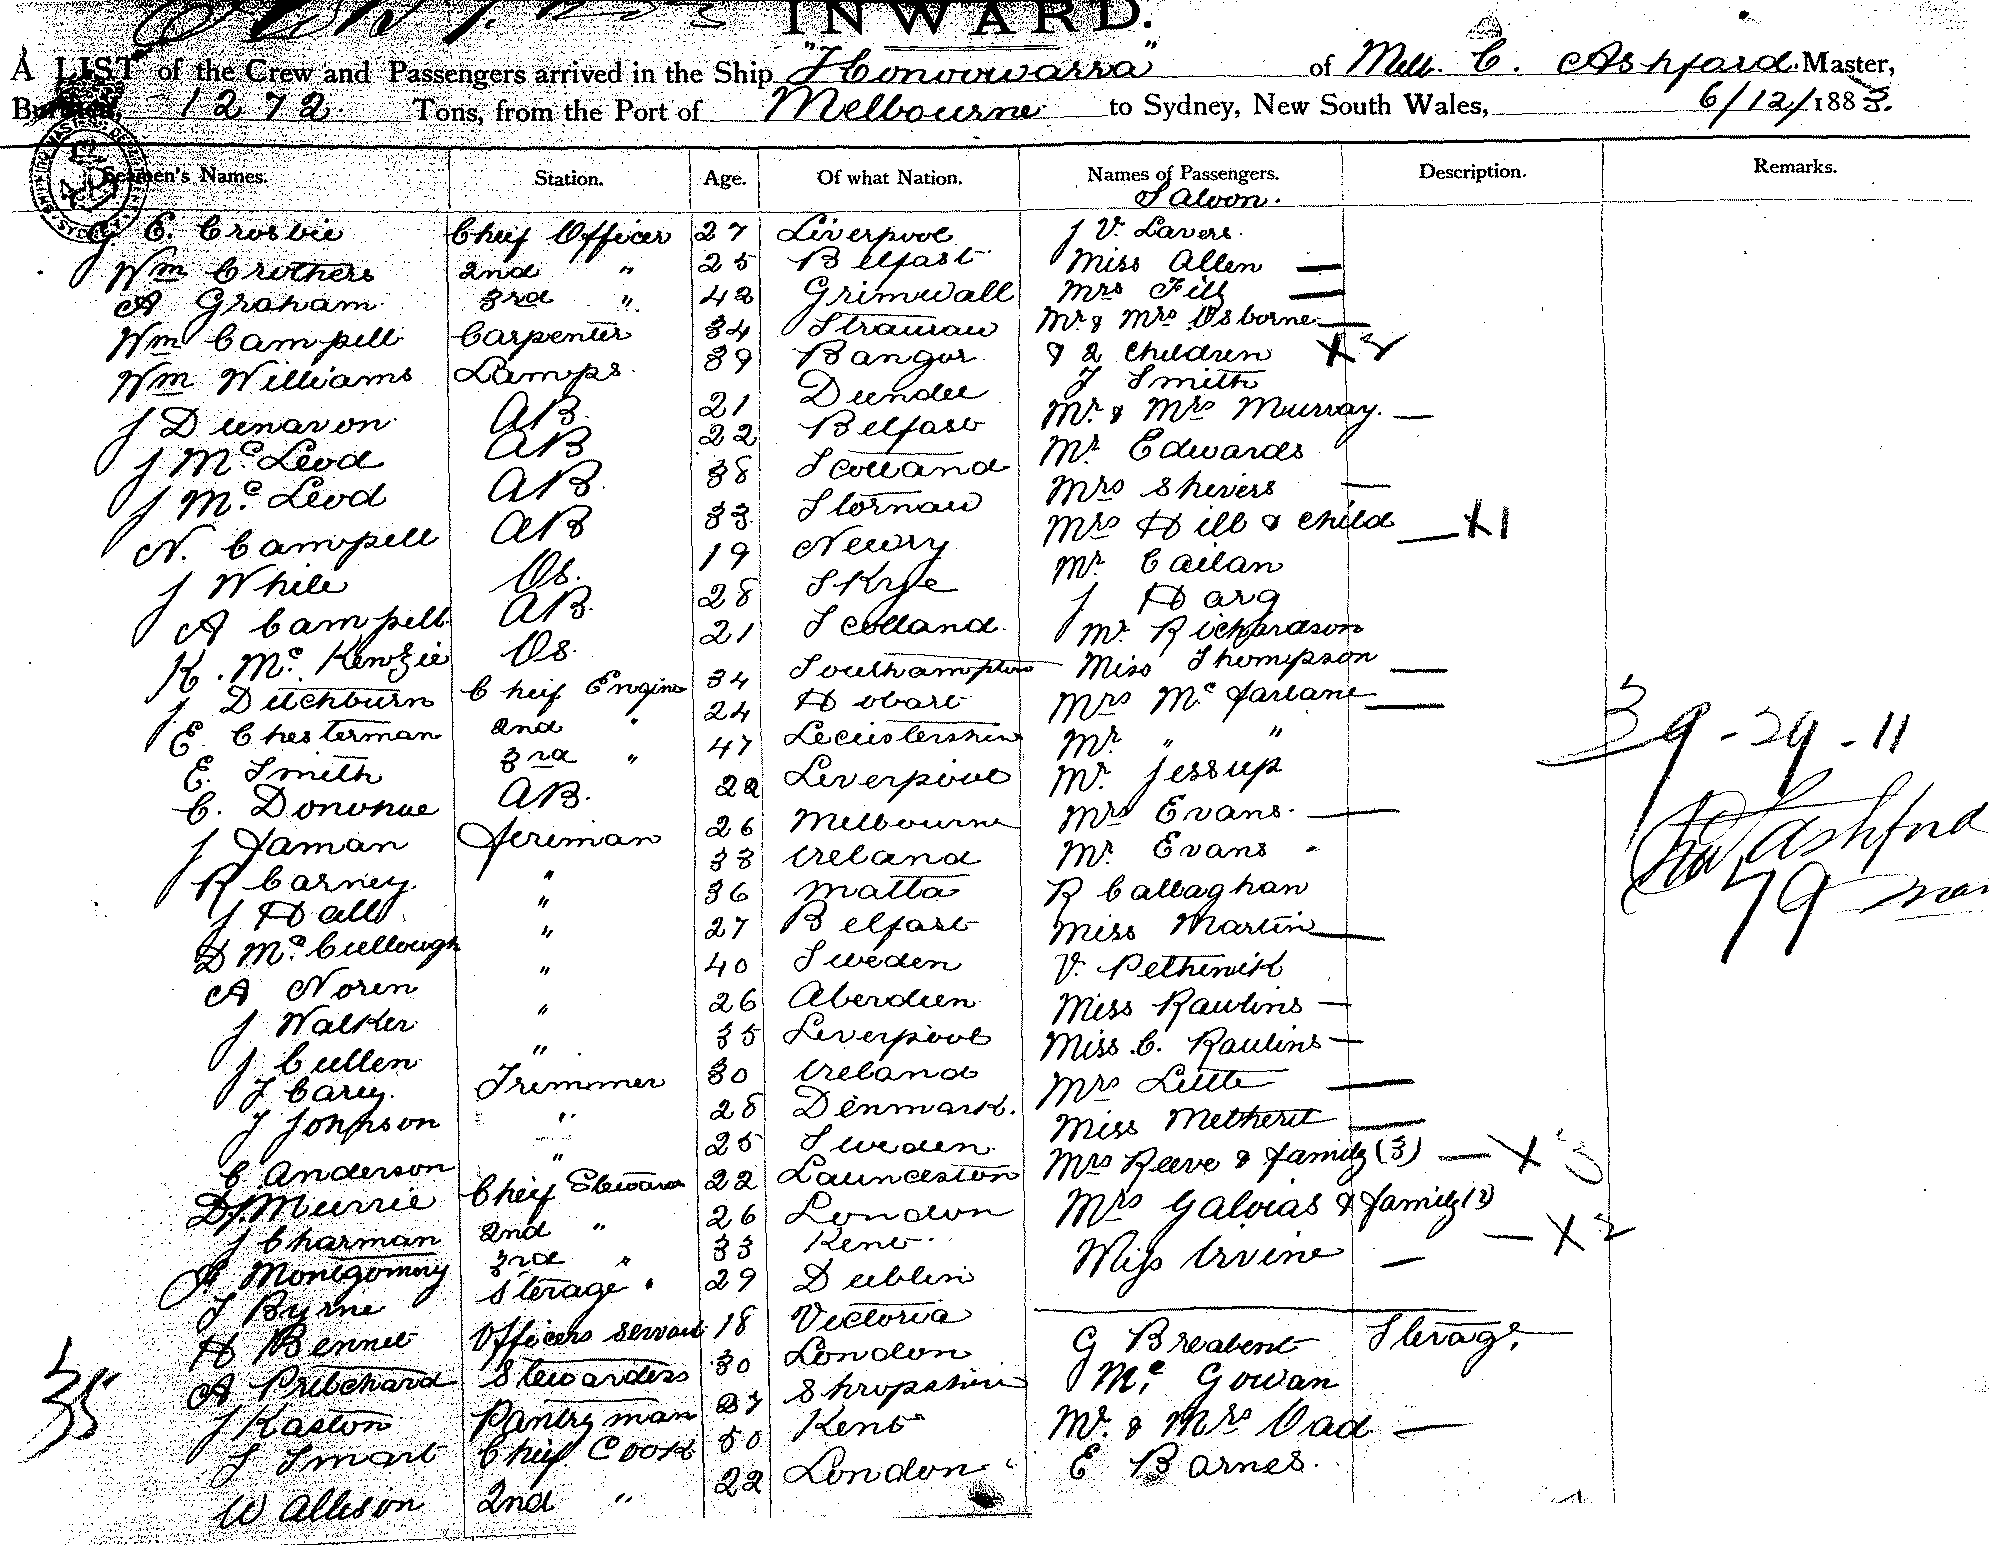 INWARD.
A LIST of the Crew and Passengers arrived in the Ship "Konoowarra" of Melb. C. Ashford Master,
Burthen, 1272 Tons, from the Port of Melbourne to Sydney, New South Wales, 6/12/1883.
Seamen's Names. Station. Age. Of what Nation. Names of Passengers. Description. Remarks.
Saloon.
G E. Crosbie Cheif Officer 27 Liverpool J V. Lavers.
Wm Crothers 2nd " 25 Belfast Miss Allen —
A Graham 3rd " 42 Grimwall Mrs Fill —
Wm Campell Carpenter 34 Stranraw Mr & Mrs Osborne —
Wm Williams Lamps. 39 Bangor & 2 Children X 2
J Dunavon AB. 21 Dundee J Smith
J McLeod AB 22 Belfast Mr. & Mrs Murray. —
J McLeod AB. 38 Scotland Mr Edwards
N. Campell AB 33 Stornaw Mrs Shivers —
J While Os. 19 Newry Mrs Hill & Child — X 1
A Campell AB. 28 Skye Mr. Cailan
K. McKenzie Os. 21 Scotland J Harg
J Ditchburn Cheif Engine 34 Southampton Mr. Richardson
E. Chesterman 2nd " 24 Hobart Miss Thompson —
E. Smith 3rd " 47 Leceistershire Mrs McFarlane —
C. Donohue AB. 22 Liverpool Mr. " "
J Jaman Fireman 26 Melbourne Mr. Jessup
R Carney " 33 Ireland Mrs Evans. —
J Hall " 36 Malta Mr. Evans
D McCullough " 27 Belfast R Callaghan
A Noren " 40 Sweden Miss Martin —
J Walker " 26 Aberdeen V. Pethewik
J Cullen " 35 Liverpool Miss Raulins —
J Carey. Trimmer 30 Ireland Miss C. Raulins —
J Johnson " 28 Denmark. Mrs Little —
C Anderson " 25 Sweden Miss Metherel —
D. Murrie Cheif Steward 22 Launceston Mrs Reeve & family (3) — X 3
J Charman 2nd " 26 London Mrs Galvias & family (2) — X 2
Montgomery 3rd " 33 Kent Miss Irvine —
J Byrne Sterage " 29 Dublin
H Bennet Officers Servant 18 Victoria G Breabent Sterage.
A Pritchard Stewardess 30 London Mc Gowan
J Kaston Pantry man 37 Shropshire Mr. & Mrs Vad —
J Smart Cheif Cook 50 Kent E Barnes.
W Allison 2nd " 22 London
35
39 - 29 - 11
Ashford
79